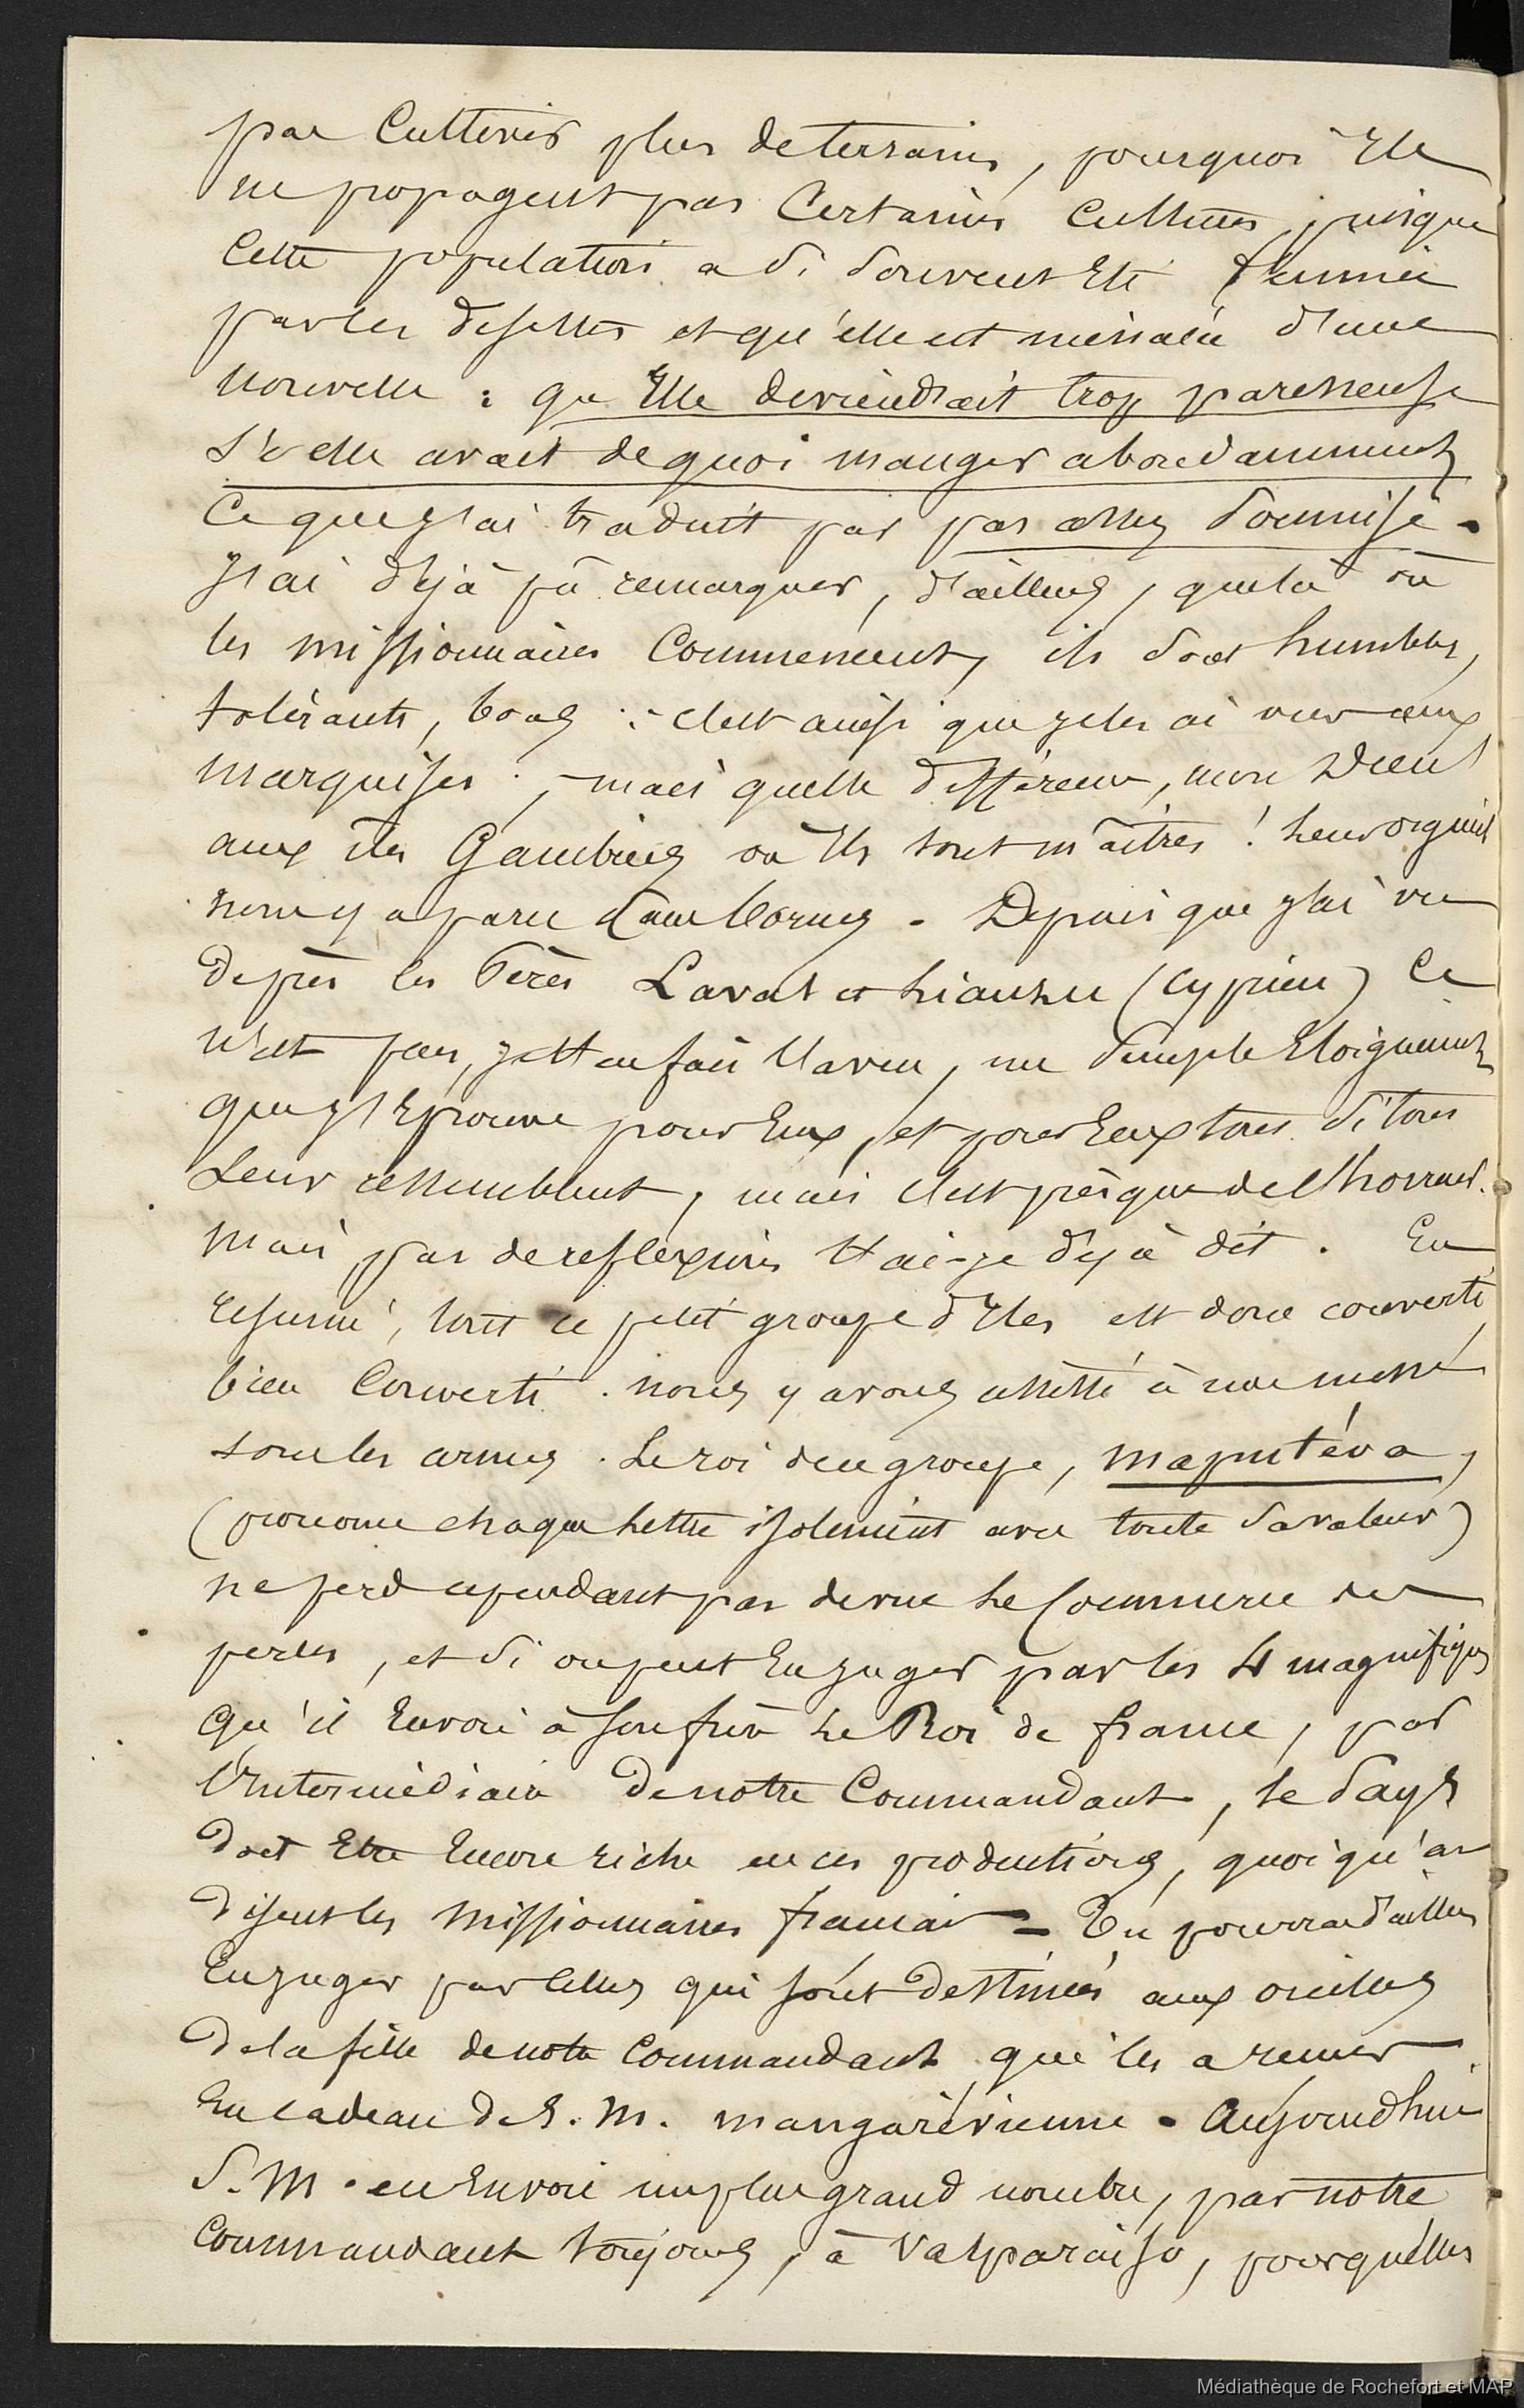 pas cultiver plus de terrains, pourquoi Ils
ne propagent pas Certaines Cultures, puisque
Cette population a si souvent Eté décimée
par les disettes et qu'elle est menacée d'une
nouvelle : qu'Elle deviendrait trop paresseuse
si elle avait de quoi manger abondamment
Ce que j'ai traduit par pas assez soumise.
J'ai déjà pû remarquer, d'ailleurs, que là où
les missionnaires Commencent, ils sont humbles,
tolérants, bons : c'est ainsi que je les ai vus aux
marquises ; mais quelle différence, mon Dieu !
aux îles Gambiers où Ils sont maîtres ! Leur orgueil
nous y a paru sans bornes. Depuis que j'ai vu
de près les Pères Laval et Liausu (Cyprien) Ce
n'est pas, je t'en fais l'aveu, un simple Eloignement
que j'Eprouve pour Eux, et pour Eux tous si tous
Leur ressemblent, mais c'est presque de l'horreur.
Mais pas de reflexions t'ai-je déjà dit. En
résumé, tout ce petit groupe d'Iles est donc converti,
bien Converti. Nous y avons assisté à une messe
sous les armes. Le roi du groupe, Maputéva,
(prononce chaque Lettre isolement avec toute sa valeur)
ne perd cependant pas de vue Le Commerce des
perles, et si on peut En juger par les 4 magnifiques
qu'il Envoie à son frère Le Roi de France, par
l'Intermédiaire de notre Commandant, le pays
doit Etre Encore riche en ces productions, quoiqu'en
disent les Missionnaires français = Tu pourras d'ailleurs
En juger par Celles qui sont destinées aux oreilles
de la fille de notre Commandant qui les a reçues
En cadeau de S. M. mangarévienne. Aujourd'hui
S. M. en Envoie un plus grand nombre, par notre
Commandant toujours, à Valparaiso, pour qu'elles
Médiathèque de Rochefort et MAP